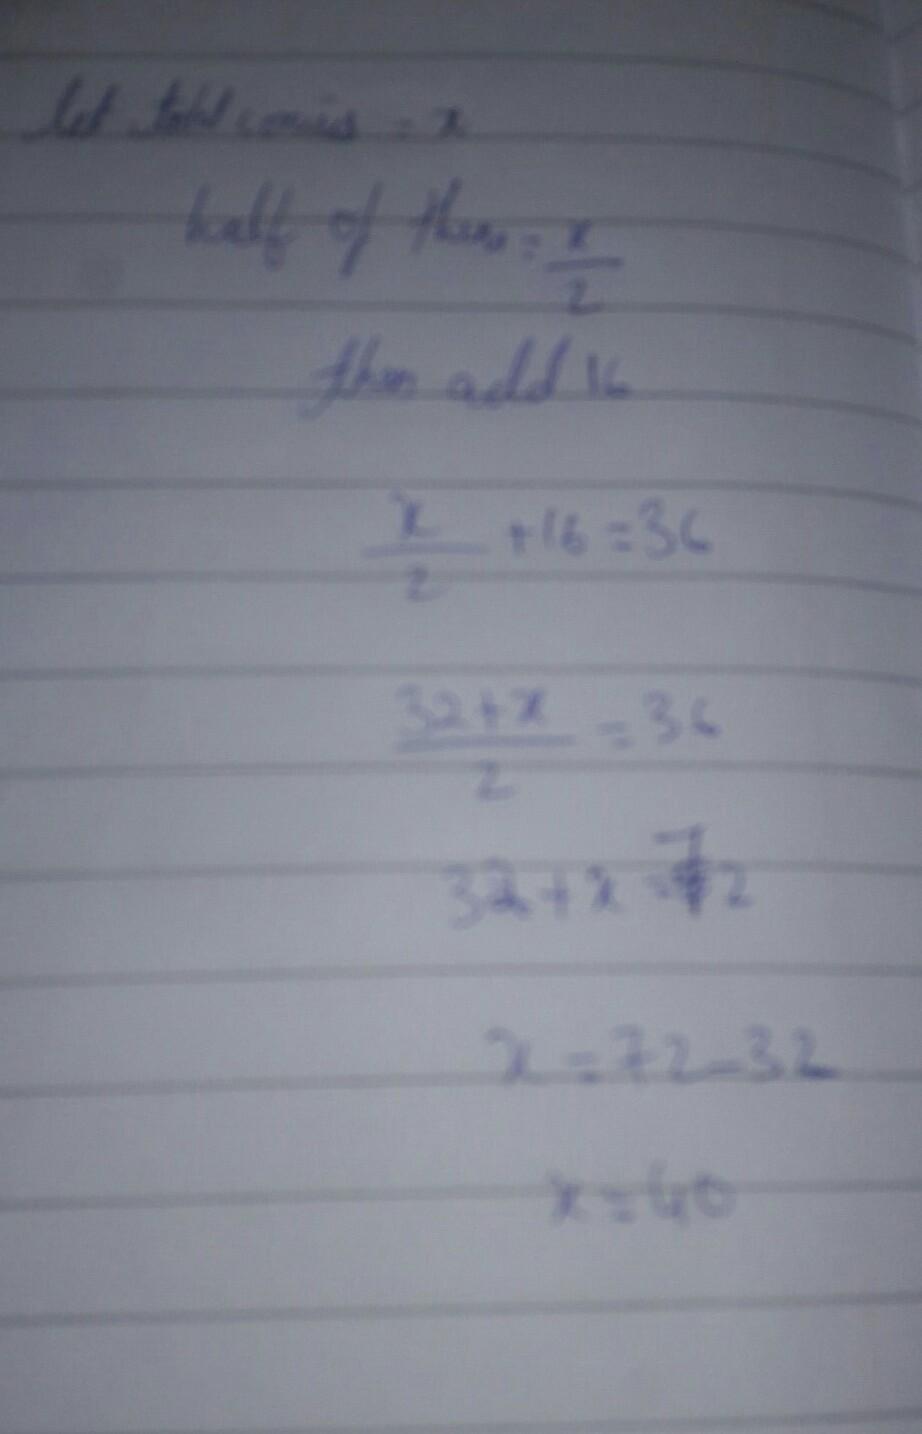 let total comics = x
half of them = x/2
then add 16
x/2 + 16 = 36
32+x/2 = 36
32+x = 72
x = 72-32
x = 40